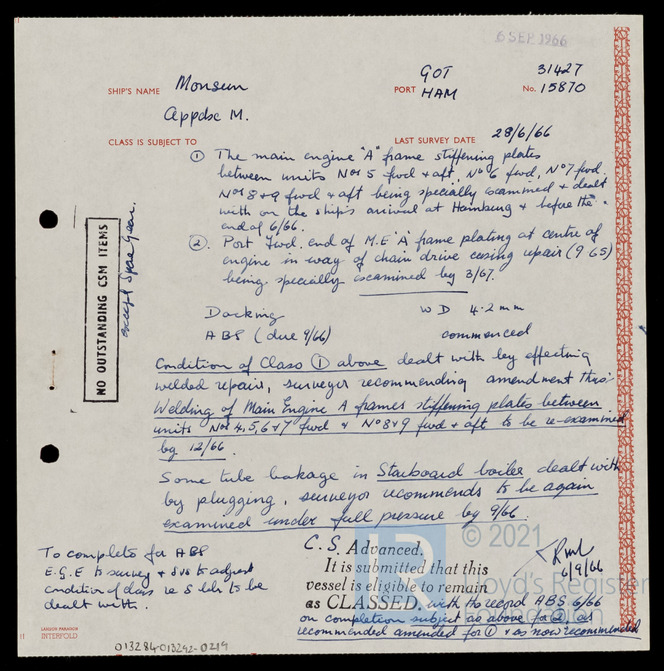 6 SEP 1966
SHIP'S NAME Monsun
PORT GOT
HAM
No. 31427
15870
Appdse M.
CLASS IS SUBJECT TO
LAST SURVEY DATE 28/6/66
① The main engine "A" frame stiffening plates
between units Nos 5 fwd & aft, No 6 fwd, No 7 fwd.
Nos 8 & 9 fwd & aft being specially examined & dealt
with on the ship's arrival at Hamburg & before the
end of 6/66.
②. Port Fwd. end of M.E "A" frame plating at centre of
engine in way of chain drive casing repair (9 65)
being specially examined by 3/67.
NO OUTSTANDING CSM ITEMS
except Spare Gear.
Docking WD 4.2mm
ABS (due 9/66) commenced
Condition of Class ① above dealt with by effecting
welded repairs, surveyor recommending amendment thus:
Welding of Main Engine A frames stiffening plates between
units Nos 4,5,6 & 7 fwd & Nos 8 & 9 fwd & aft to be re-examined
by 12/66.
Some tube leakage in Starboard boiler dealt with
by plugging, surveyor recommends to be again
examined under full pressure by 9/66.
To complete for ABS
E.G.E to survey & svs to adjust
condition of class re S blr to be
dealt with.
C.S. Advanced.
It is submitted that this
vessel is eligible to remain
as CLASSED. with the record ABS 6/66
on completion subject as above for ② as
recommended amended for ① & as now recommended
6/9/66
© 2021
Lloyd's Register
Foundation
LAMSON PARAGON
INTERFOLD
013284-013292-0219